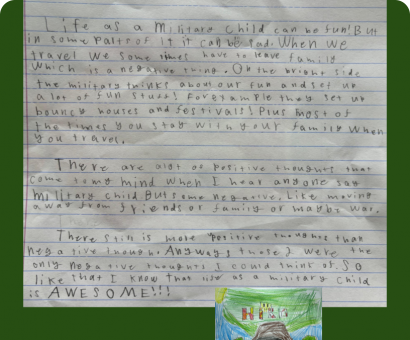 Life as a military child can be fun! But
in some parts of it it can be sad. When we
travel we some times have to leave family
which is a negative thing. On the bright side
the military thinks about our fun and set up
a lot of fun stuff! For example they set up
bouncy houses and festivals! Plus most of
the times you stay with your family when
you travel.
There are alot of positive thoughts that
come to my mind when I hear anyone say
military child. But some negative. Like moving
away from friends or family or maybe war.
There still is more positive thoughts than
negative though. Anyways those 2 were the
only negative thoughts I could think of. So
like that I know that life as a military child
is AWESOME!!!